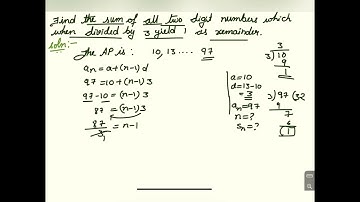 Find the sum of all two digit numbers which
when divided by 3 yield 1 as remainder.
Soln:-
The AP is : 10, 13 .... 97
an = a+(n-1) d
97 = 10 + (n-1) 3
97-10 = (n-1) 3
87 = (n-1) 3
87/3 = n-1
a = 10
d = 13-10
= 3
an = 97
n = ?
Sn = ?
3
3) 10
9
1
3) 97 (32
9
7
6
1